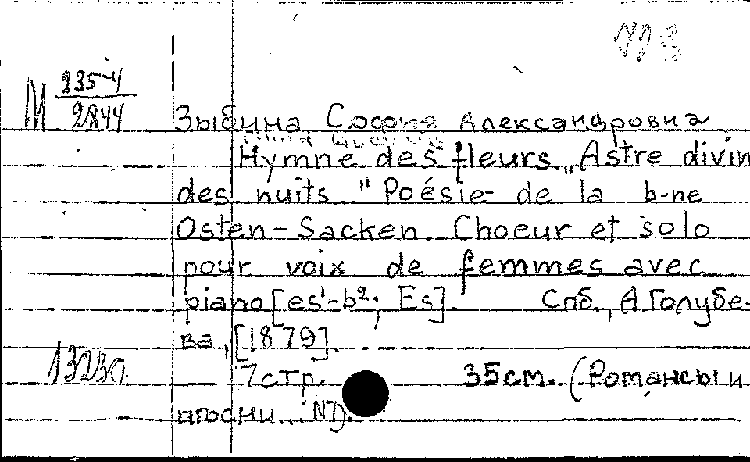 М 335-4
2844
Зыбина София Александровна
Hymne des fleurs „Astre divin
des nuits" Poésie de la b-ne
Osten-Sacken. Choeur et solo
pour voix de femmes avec
piano [es¹-b²; Es]. Спб., А. Голубе-
ва, [1879].
7 стр. 35 см. (Романсы и
песни...